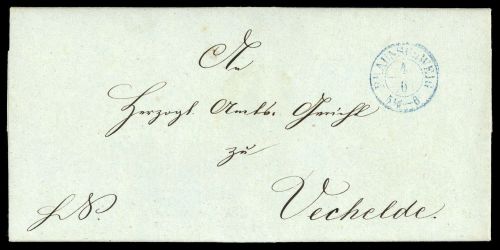 An
BRAUNSCHWEIG
4
6
5½-6
Herzogl. Amts-Gericht
zu
Vechelde.